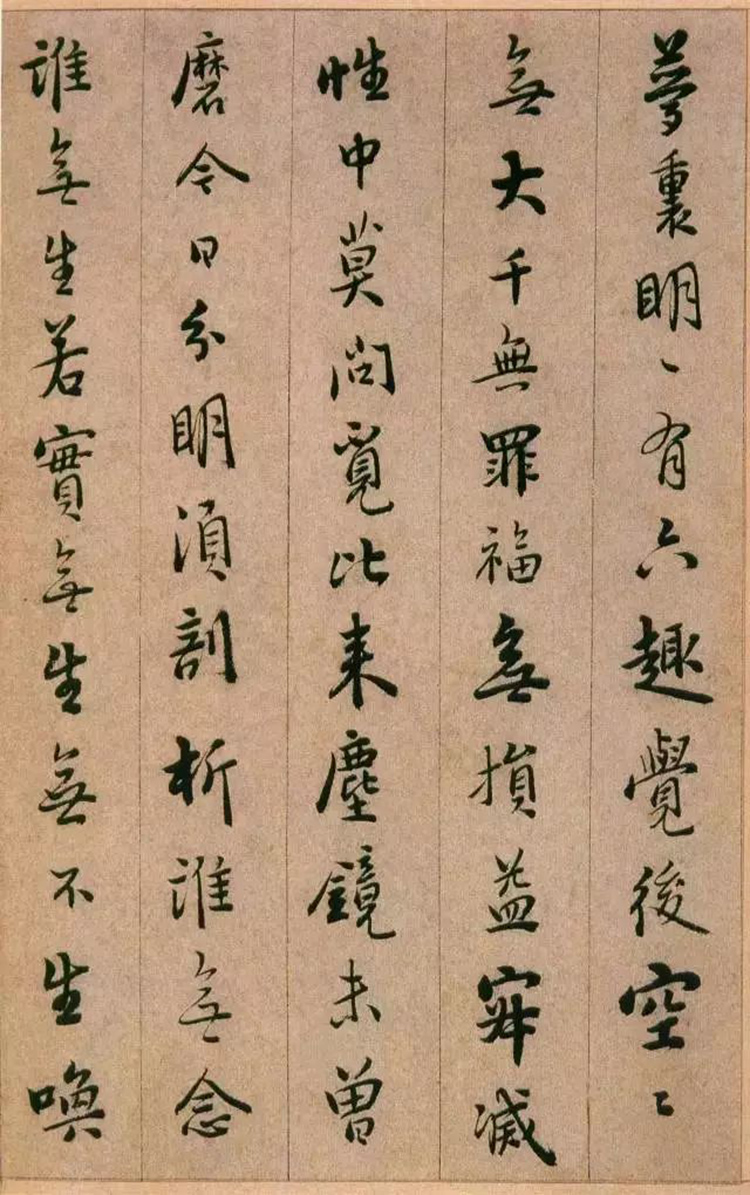 夢裏明〻有六趣覺後空〻
無大千無罪福無損益寂滅
性中莫問覓比來塵鏡未曾
磨今日分明須剖析誰無念
誰無生若實無生無不生喚